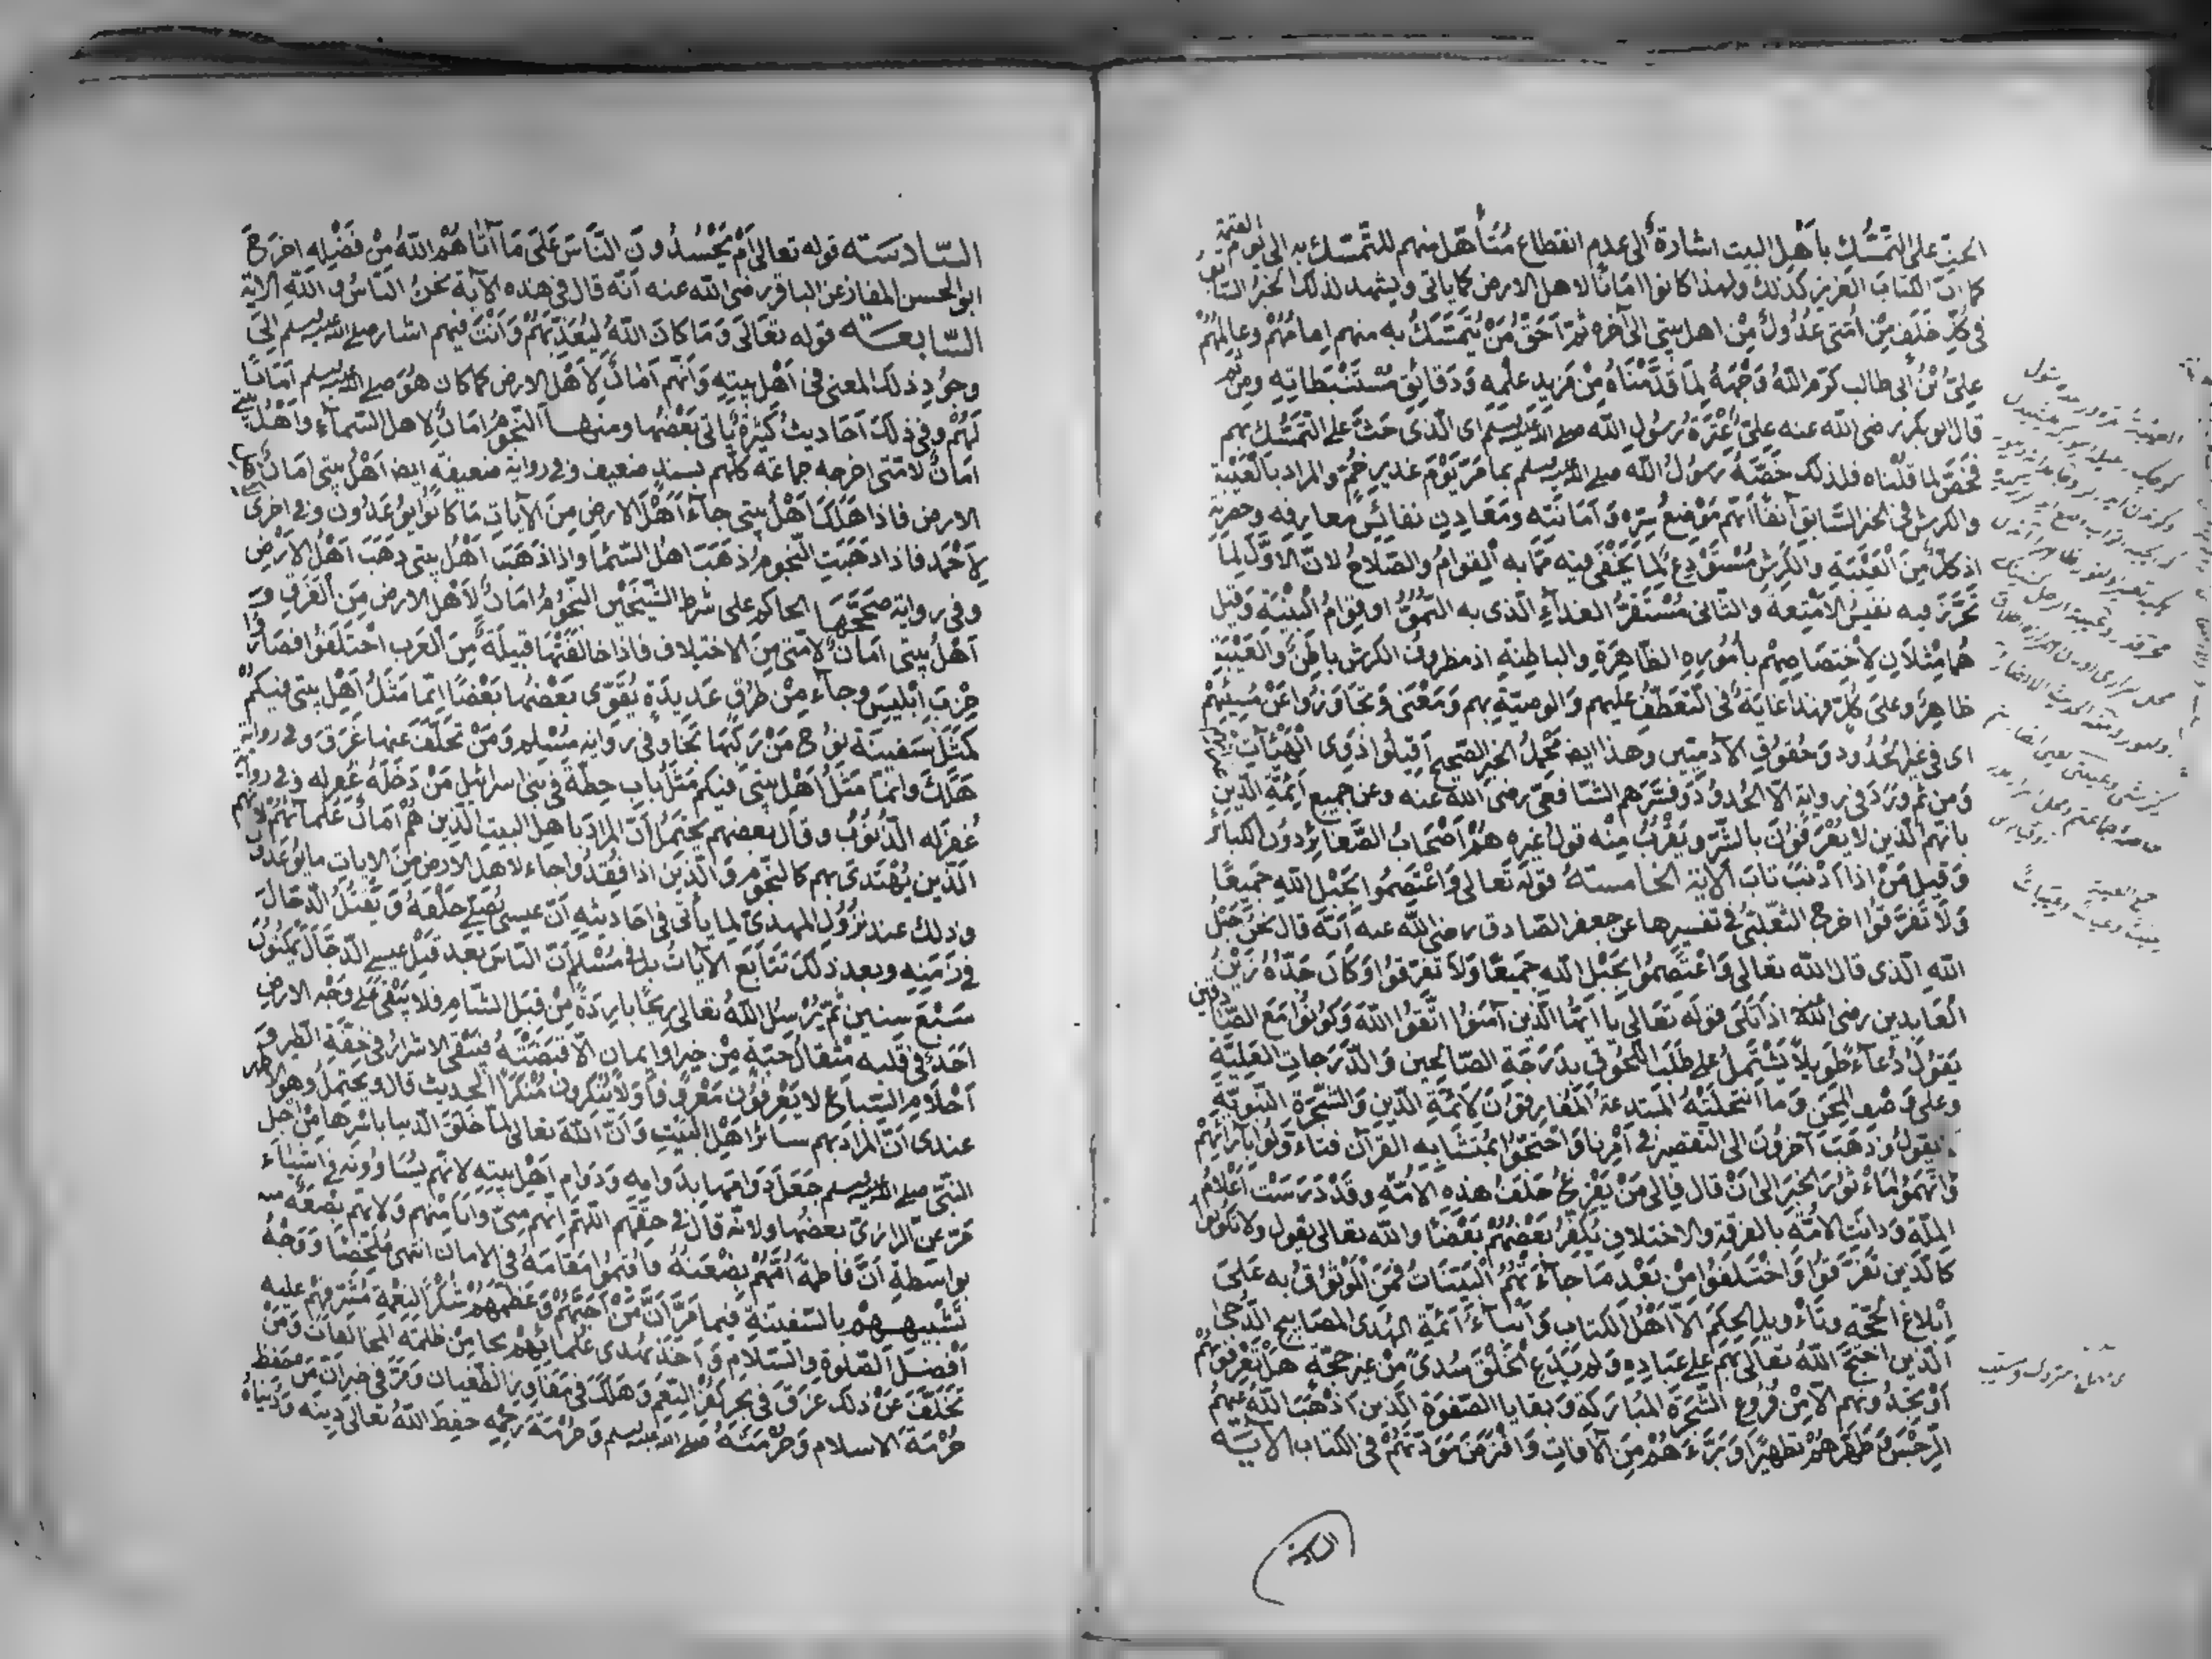 الحث على التمسك بأهل البيت اشارة الى عدم انقطاع متأهل منهم للتمسك به الى يوم القيمة
كما ان الكتاب العزيز كذلك ولهذا كانوا امانا لاهل الارض كما ياتى ويشهد لذلك الخبر السابق
فى كل خلف من امتى عدول من اهل بيتى الى آخره ثم احق من يتمسك به منهم امامهم وعالمهم
على بن أبى طالب كرم الله وجهه لما قدمناه من مزيد علمه ودقائق مستنبطاته ومن ثم
قال ابو بكر رضى الله عنه على عترة رسول الله صلى الله عليه وسلم اى الذى حث على التمسك بهم
فخص لما قلناه فلذلك خصه رسول الله صلى الله عليه وسلم بما مر يوم غدير خم والمراد بالعيبة
والكرش فى الخبر السابق آنفا انهم موضع سره وامانته ومعادن نفائس معارفه وحضرته
اذ كل من العيبة والكرش مستودع لما يخفى فيه مما به القوام والصلاح لان الاول لما
تحرز فيه نفيس الامتعة والثانى مستقر الغداء الذى به النمو او قوام البنية وقيل
هما مثلان لاختصاصهم بأموره الظاهرة والباطنة اذ مظروف الكرش باطن والعيبة
ظاهر وعلى كل فهذا غاية فى التعطف عليهم والوصية بهم ومعنى وتجاوزوا عن مسيئهم
اى فى غير الحدود وحقوق الآدميين وهذا ايضا محمل الخبر الصحيح اقيلوا ذوى الهيئات عثراتهم
ومن ثم ورد فى رواية الا الحدود وفسرهم الشافعى رضى الله عنه وعن جميع ايمة الدين
بانهم الذين لا يعرفون بالشر ويقرب منه قول غيره هم اصحاب الصغائر دون الكبائر
وقيل من اذا اذنب تاب الآية الخامسة قوله تعالى واعتصموا بحبل الله جميعا
ولا تفرقوا اخرج الثعلبى فى تفسيرها عن جعفر الصادق رضى الله عنه انه قال نحن حبل
الله الذى قال الله تعالى واعتصموا بحبل الله جميعا ولا تفرقوا وكان جده زين
العابدين رضى الله عنه اذا تلى قوله تعالى يا ايها الذين آمنوا اتقوا الله وكونوا مع الصادقين
يقول دعاء طويلا يشتمل على طلب اللحوق بدرجة الصالحين والدرجات العلية
وعلى وصف المحن وما انتحلته المبتدعة المفارقون لائمة الدين والشجرة النبوية
ثم يقول وذهب آخرون الى التقصير فى امرنا واحتجوا بمتشابه القرآن فتاءولوا بآرائهم
واتهموا ماءثور الخبر الى ان قال فالى من يفزع خلف هذه الامة وقد درست اعلام
الملة ودانت الامة بالفرقة والاختلاف يكفر بعضهم بعضا والله تعالى يقول ولا تكونوا
كالذين تفرقوا واختلفوا من بعد ما جاءتهم البينات فمن الموثوق به على
ابلاغ الحجة وتاءويل الحكم الا اهل الكتاب وابناء ائمة الهدى المصابيح الدجى
الذين احتج الله تعالى بهم على عباده ولم يدع الخلق سدى من غير حجة هل تعرفونهم
او تجدونهم الا من فروع الشجرة المباركة وبقايا الصفوة الذين اذهب الله عنهم
الرجس وطهرهم تطهيرا وبرءهم من الآفات وافترض مودتهم فى الكتاب الآية
السادسة
السادسة قوله تعالى أم يحسدون الناس على ما آتاهم الله من فضله اخرج
ابو الحسن المغازى عن الباقر رضى الله عنه انه قال فى هذه الآية نحن الناس والله الآية
السابعة قوله تعالى وما كان الله ليعذبهم وانت فيهم اشار صلى الله عليه وسلم الى
وجود ذلك المعنى فى اهل بيته وانهم امان لاهل الارض كما كان هو صلى الله عليه وسلم امانا
لهم وفى ذلك احاديث كثيرة ياتى بعضها ومنها النجوم امان لاهل السماء واهل بيتى
امان لامتى اخرجه جماعة كلهم بسند ضعيف وفى رواية ضعيفة ايضا اهل بيتى امان لاهل
الارض فاذا هلك اهل بيتى جاء اهل الارض من الآيات ما كانوا يوعدون وفى اخرى
لاحمد فاذا ذهبت النجوم ذهب اهل السماء واذا ذهب اهل بيتى ذهب اهل الارض
وفى رواية صححها الحاكم على شرط الشيخين النجوم امان لاهل الارض من الغرق و
اهل بيتى امان لامتى من الاختلاف فاذا خالفتها قبيلة من العرب اختلفوا فصاروا
حزب ابليس وجاء من طرق عديدة يقوى بعضها بعضا انما مثل اهل بيتى فيكم
كمثل سفينة نوح من ركبها نجا وفى رواية مسلم ومن تخلف عنها غرق وفى رواية
هلك وانما مثل اهل بيتى فيكم مثل باب حطة فى بنى اسرائيل من دخله غفر له وفى رواية
غفر له الذنوب وقال بعضهم يحتمل ان المراد باهل البيت الذين هم امان علماءهم لانهم
الذين يهتدى بهم كالنجوم والذين اذا فقدوا جاء لاهل الارض من الايات ما يوعدون
وذلك عند نزول المهدى لما يأتى فى احاديثه ان عيسى يصلى خلفه ويقتل الدجال
فى زمنه وبعد ذلك تتابع الآيات بل فى مسلم ان الناس بعد قتل عيسى الدجال يمكثون
سبع سنين ثم يرسل الله تعالى ريحا باردة من قبل الشام فلا يبقى على وجه الارض
احد فى قلبه مثقال حبة من خير او ايمان الا قبضته فيبقى الاشرار فى خفة الطير و
احلام السباع لا يعرفون معروفا ولا ينكرون منكرا الحديث قال ويحتمل وهو الاظهر
عندى ان المراد بهم سائر اهل البيت وان الله تعالى لما خلق الدنيا باسرها من اجل
النبى صلى الله عليه وسلم جعل دوامها بدوامه ودوام اهل بيته لانهم يساوونه فى اشياء
مر عن الرازى بعضها ولانه قال فى حقهم اللهم انهم منى وانا منهم ولانهم بضعة منه
بواسطة ان فاطمة امهم بضعته فاقيموا مقامه فى الامان انتهى ملخصا ووجه
تشبيههم بالسفينة فيما مر ان من احبهم وعظمهم شكرا لنعمة مشرفهم عليه
افضل الصلوة والسلام واخذ بهدى علمائهم نجا من ظلمة المخالفات ومن
تخلف عن ذلك غرق فى بحر كفر النعم وهلك فى مفاوز الطغيان ومر فى خبر ان من حفظ
حرمة الاسلام وحرمته صلى الله عليه وسلم وحرمة رحمه حفظ الله تعالى دينه ودنياه